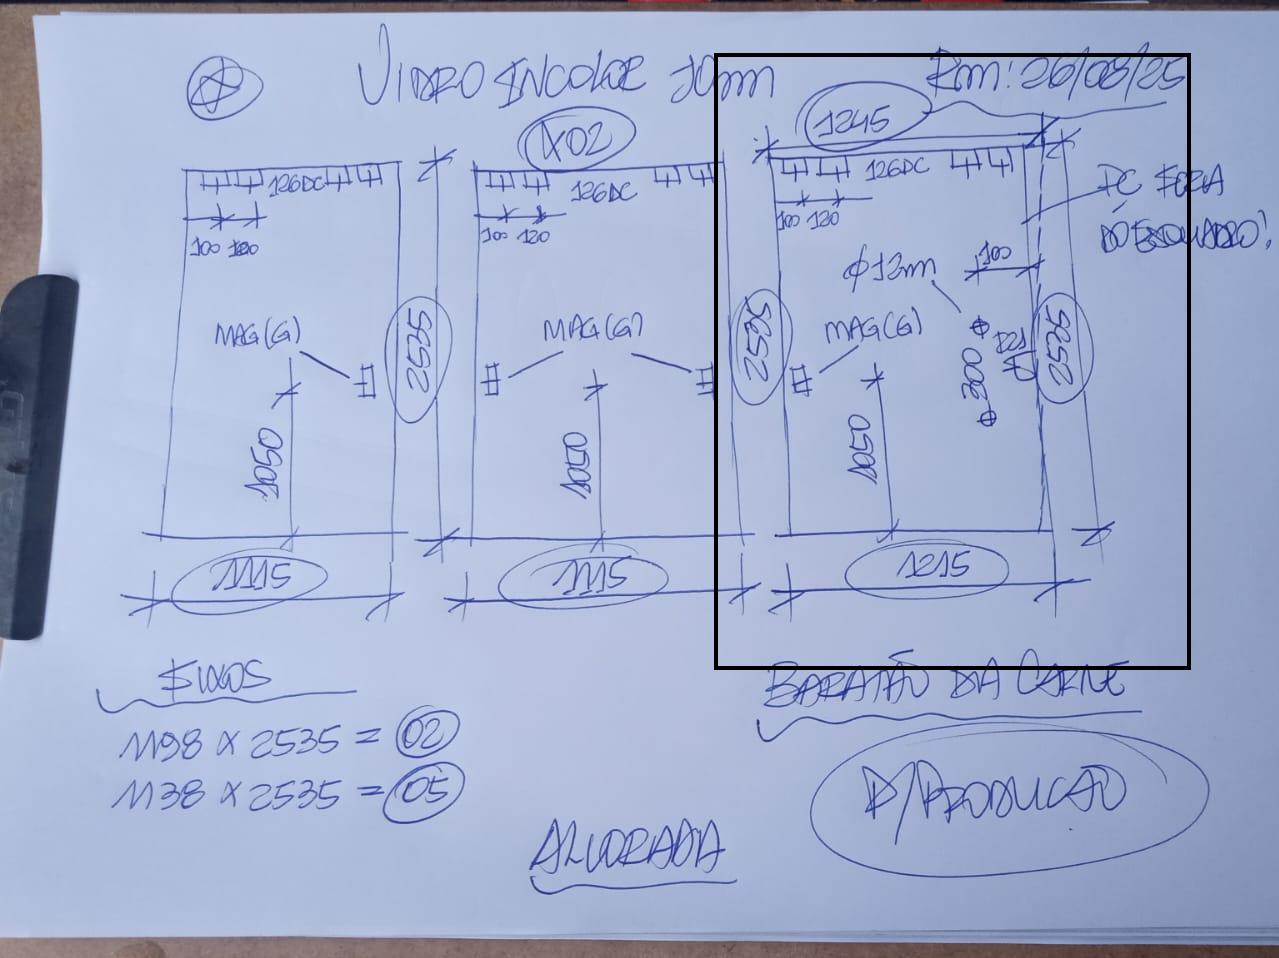 VIDRO INCOLOR 10mm
Rm: 26/08/25
X02
1245
126DC
126DC
126DC
PC FORA
DO ESQUADRO!
100 120
100 120
100 120
100
Φ12m
MAG(G)
MAG(G)
MAG(G)
2535
2535
2535
300
1050
1050
1050
1115
1115
1215
FIXOS
1198 X 2535 = 02
1138 X 2535 = 05
BARATÃO DA CARNE
P/PRODUÇÃO
ALVORADA